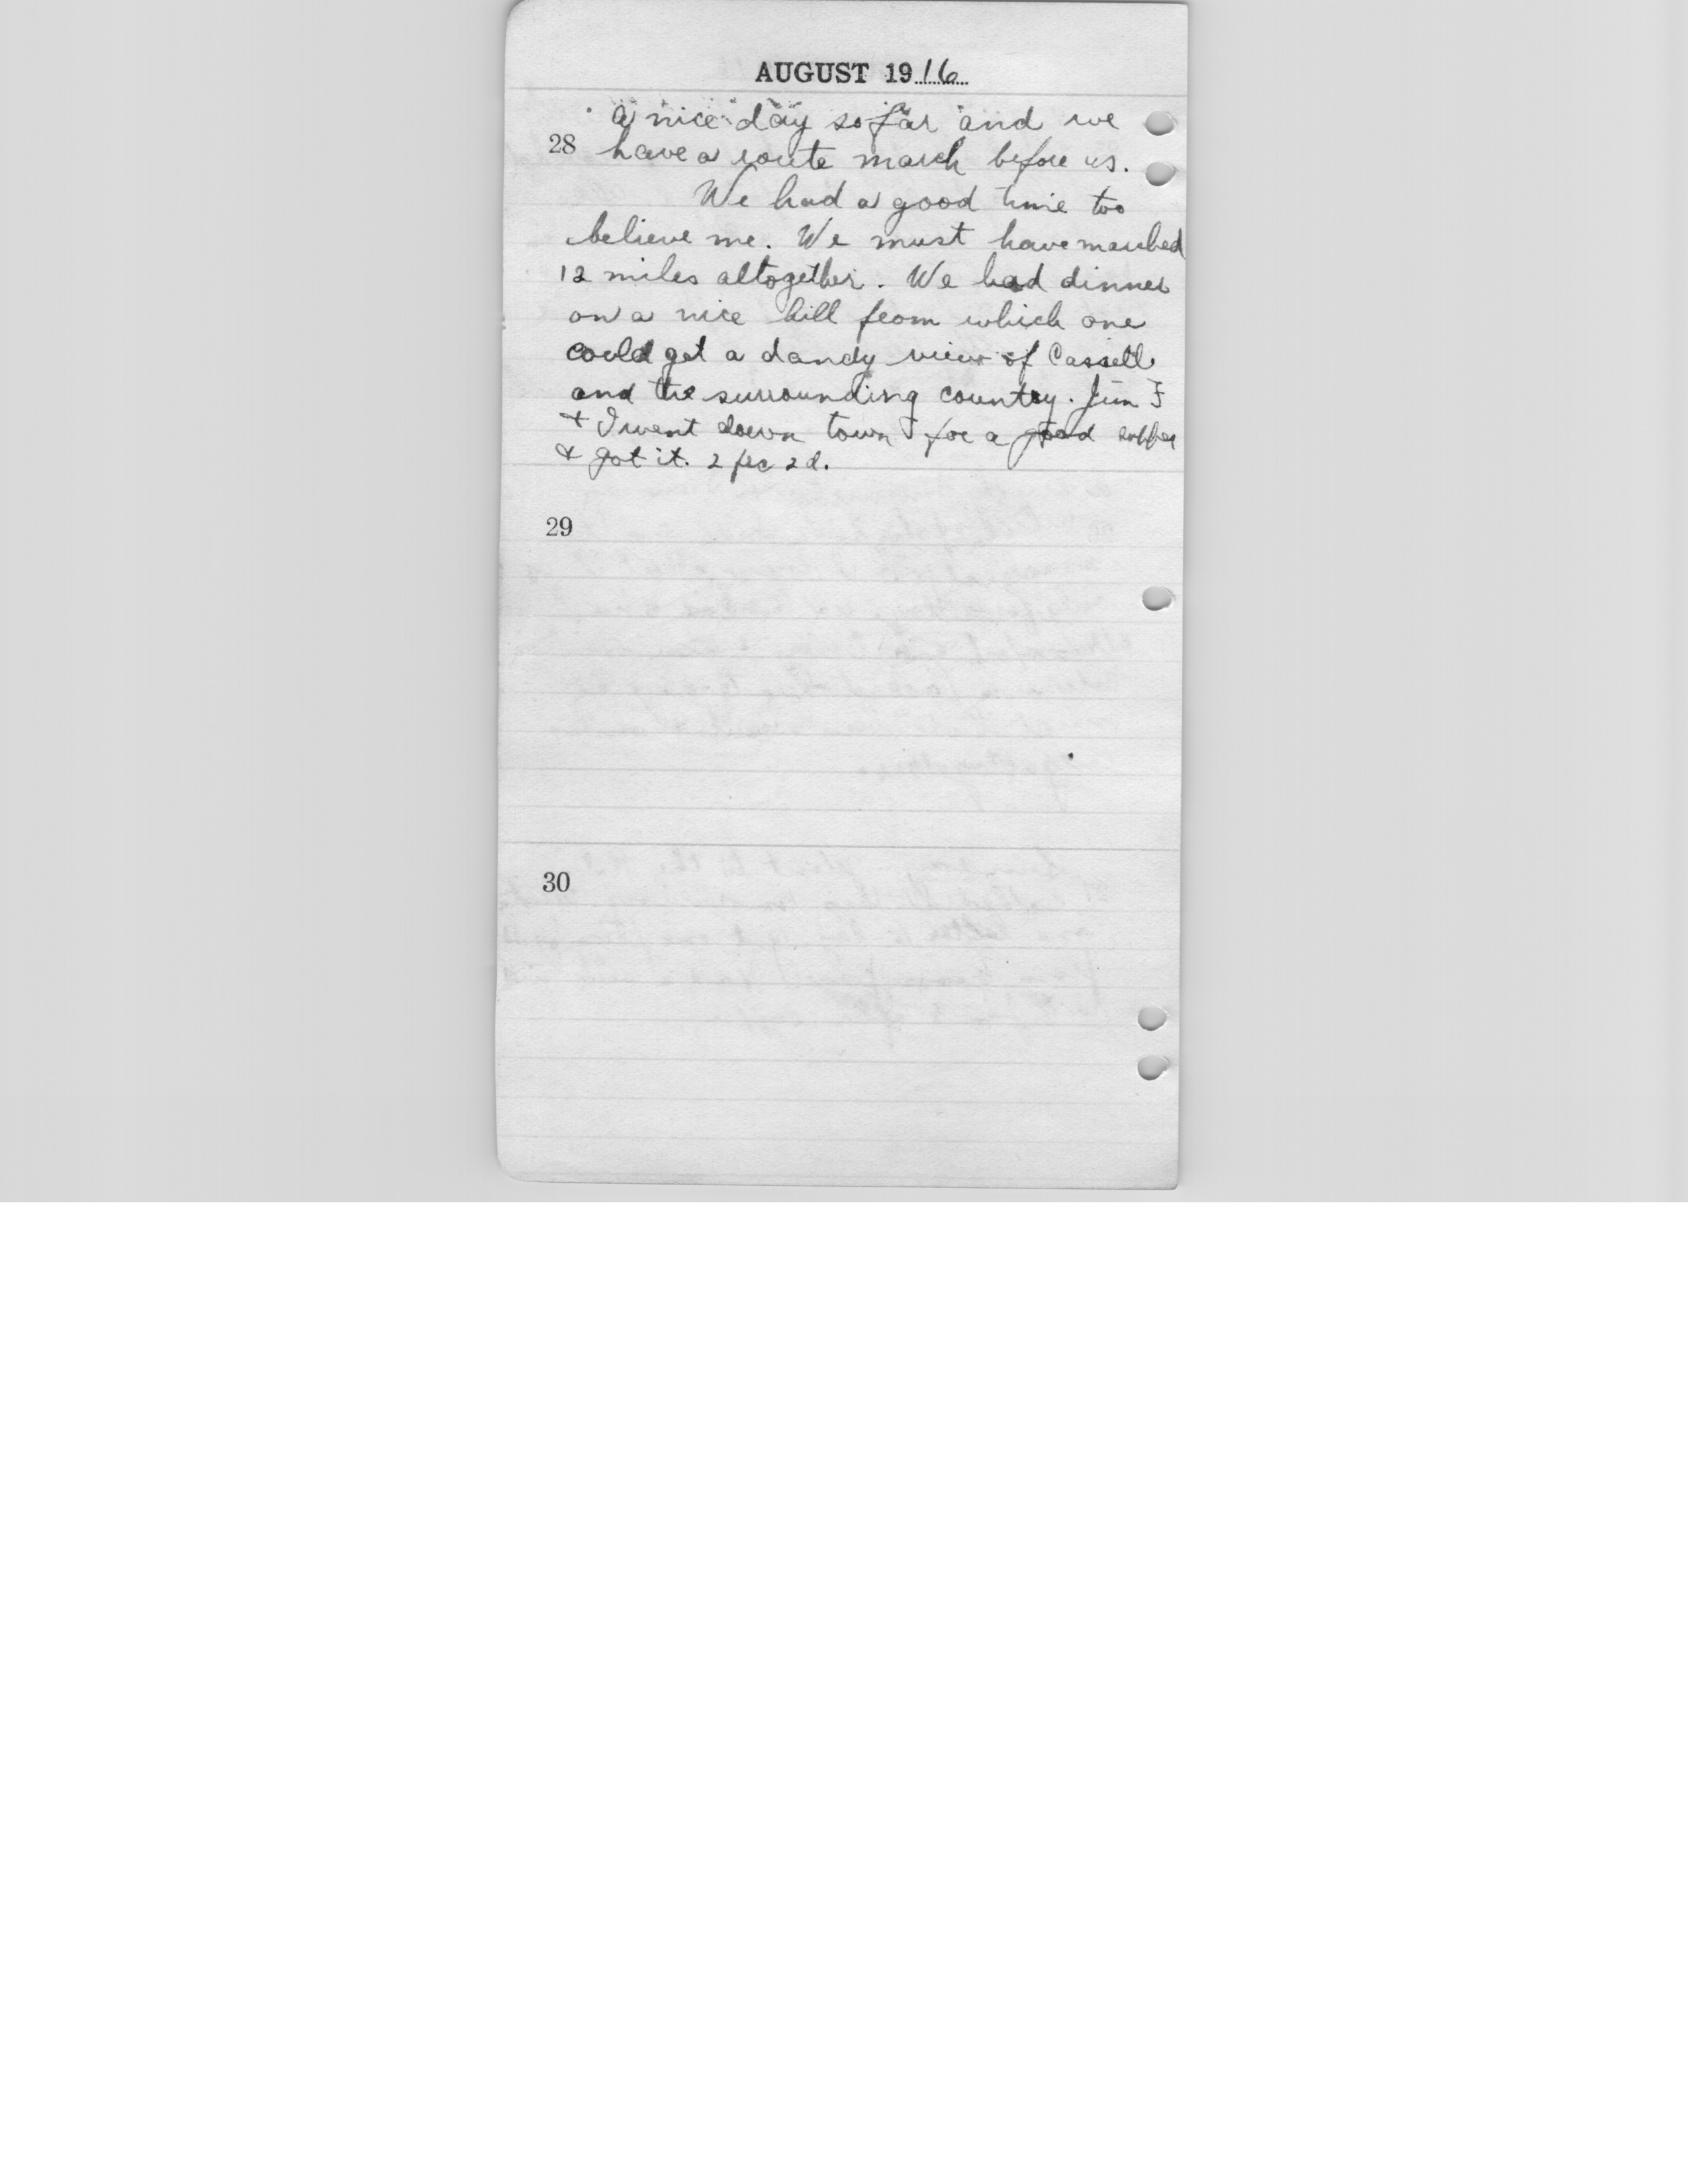 AUGUST 1916
A nice day so far and we
28 have a route march before us.
We had a good time too
believe me. We must have marched
12 miles altogether. We had dinner
on a nice hill from which one
could get a dandy view of Cassell
and the surrounding country. Jim F
+ I went down town for a good supper
& got it. 2 frc 2d.
29
30